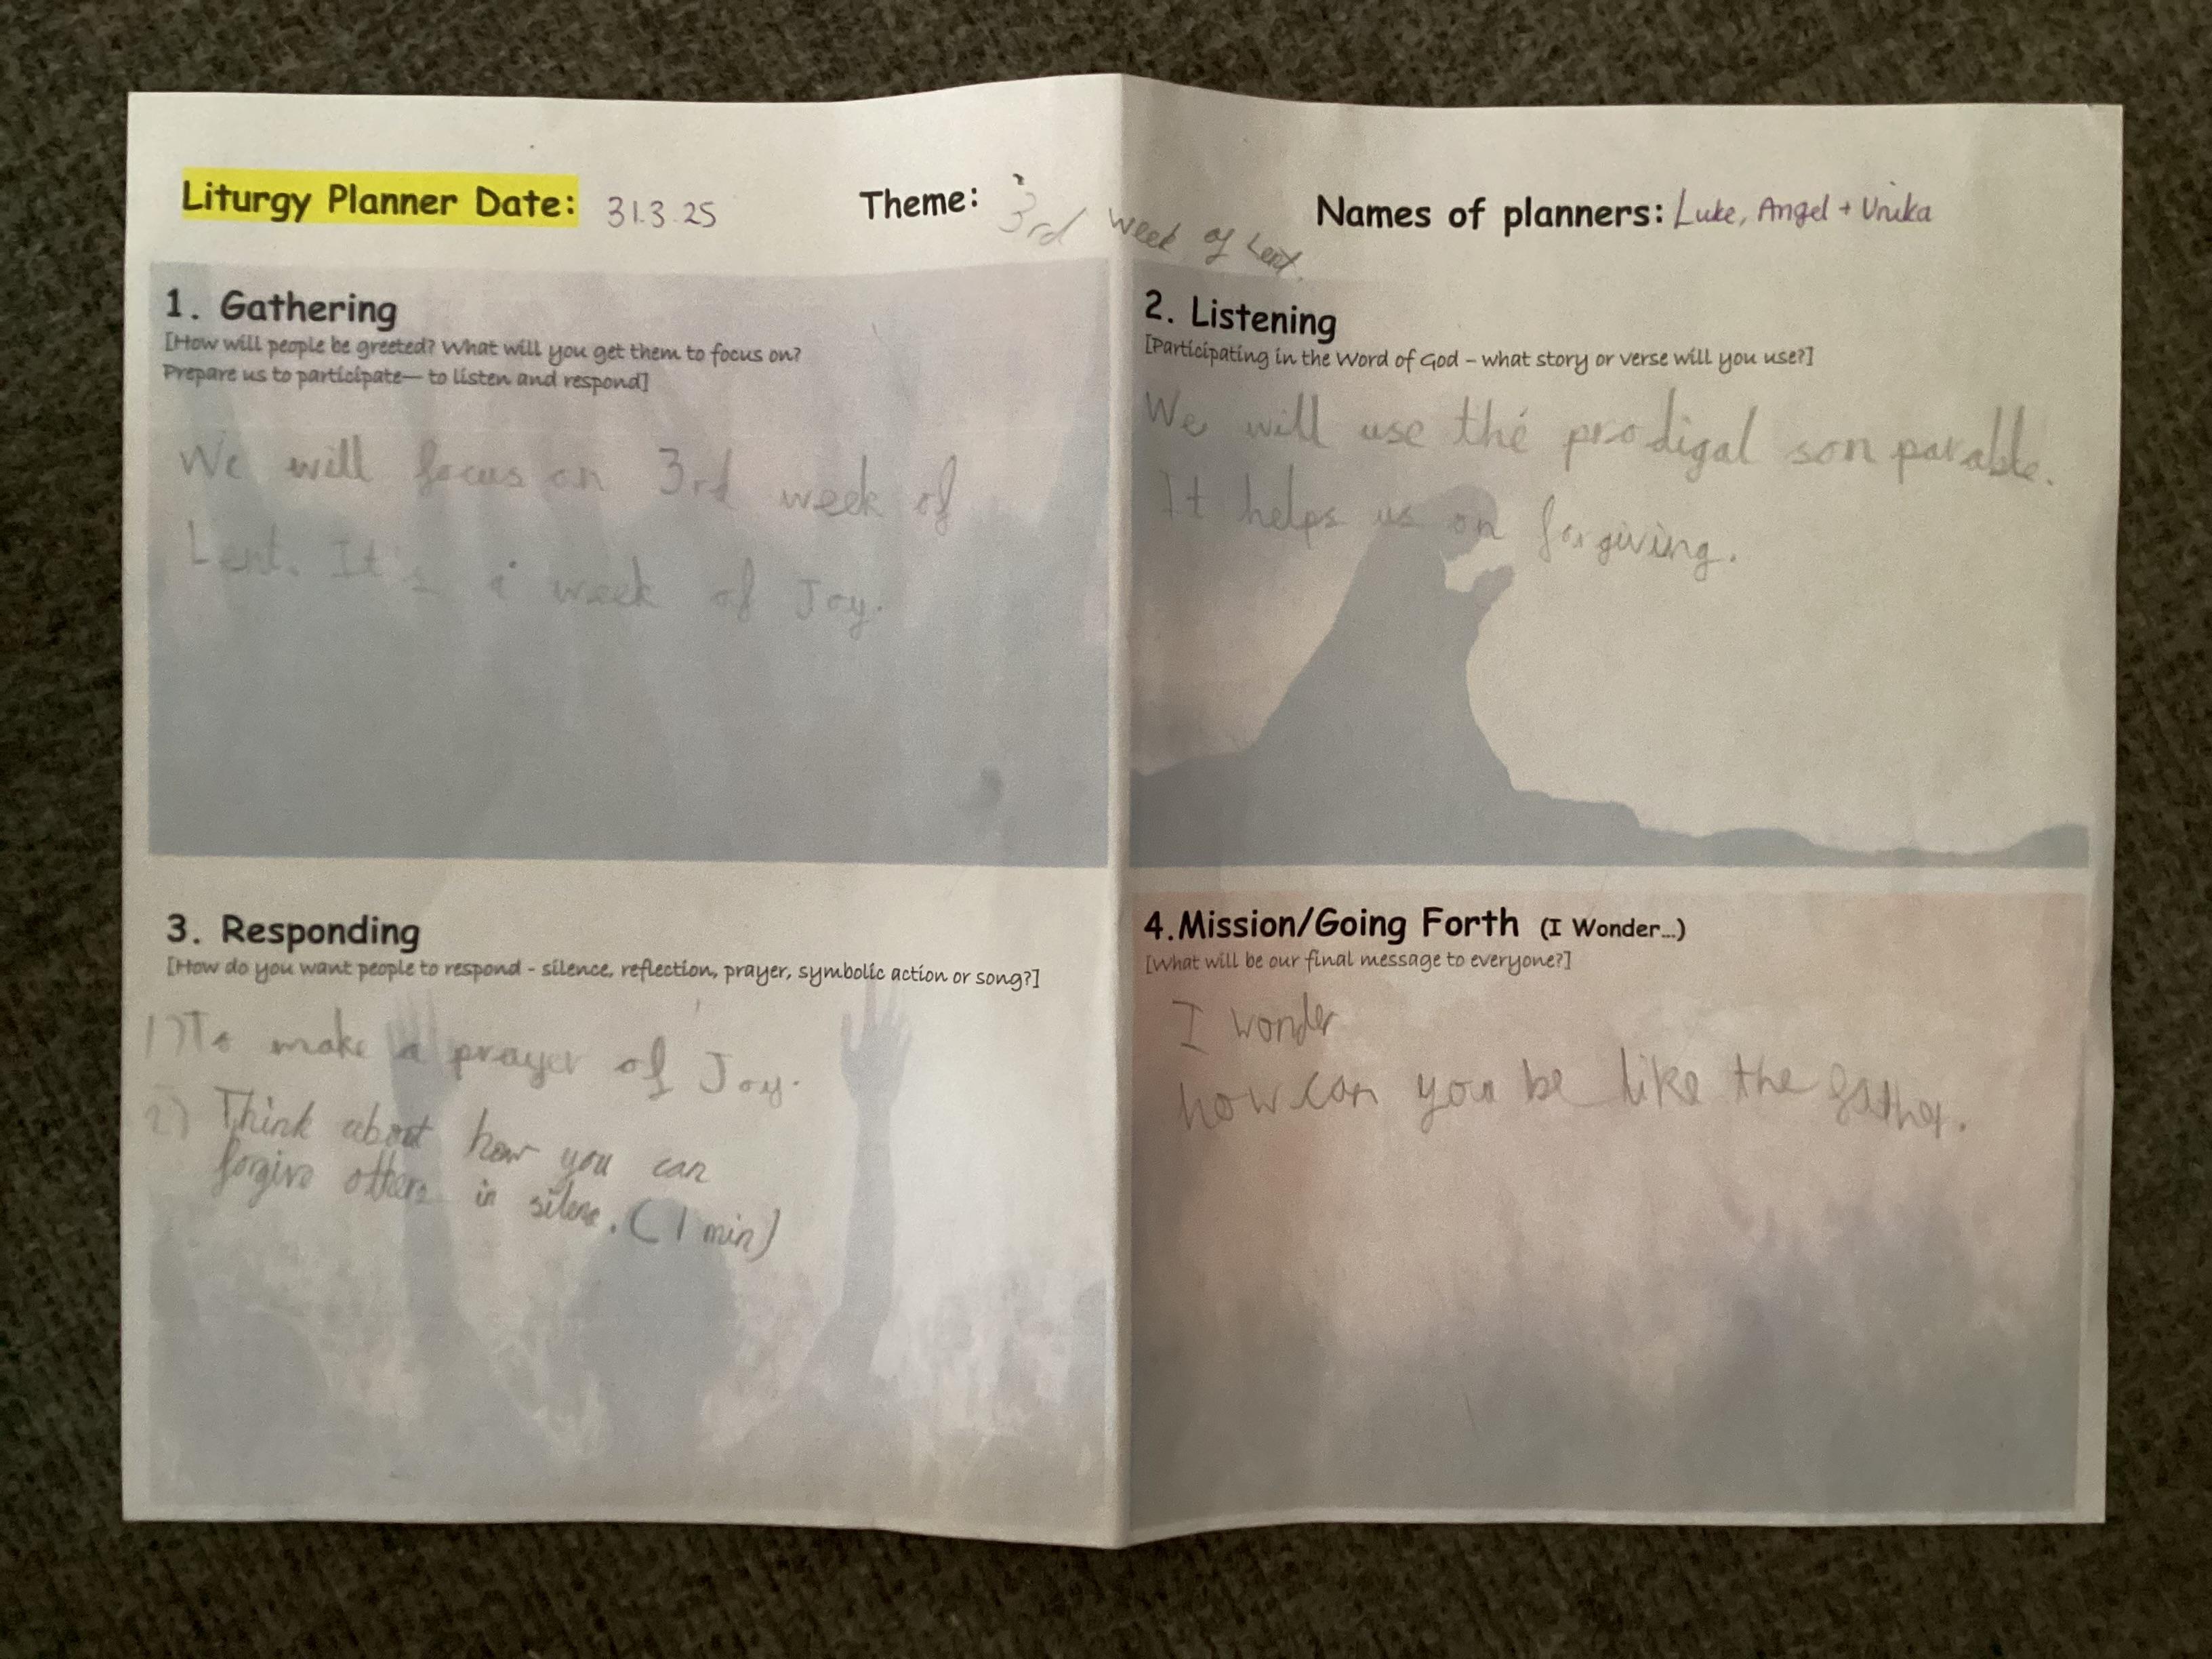 Liturgy Planner Date: 31.3.25
Theme: 3rd week of Lent.
Names of planners: Luke, Angel + Unika
1. Gathering
[How will people be greeted? What will you get them to focus on?
Prepare us to participate— to listen and respond]
We will focus on 3rd week of
Lent. It's a week of Joy.
2. Listening
[Participating in the Word of God – what story or verse will you use?]
We will use the prodigal son parable.
It helps us on forgiving.
3. Responding
[How do you want people to respond - silence, reflection, prayer, symbolic action or song?]
1) To make a prayer of Joy.
2) Think about how you can
forgive others in silence. (1 min)
4.Mission/Going Forth (I Wonder...)
[What will be our final message to everyone?]
I wonder
how can you be like the father.